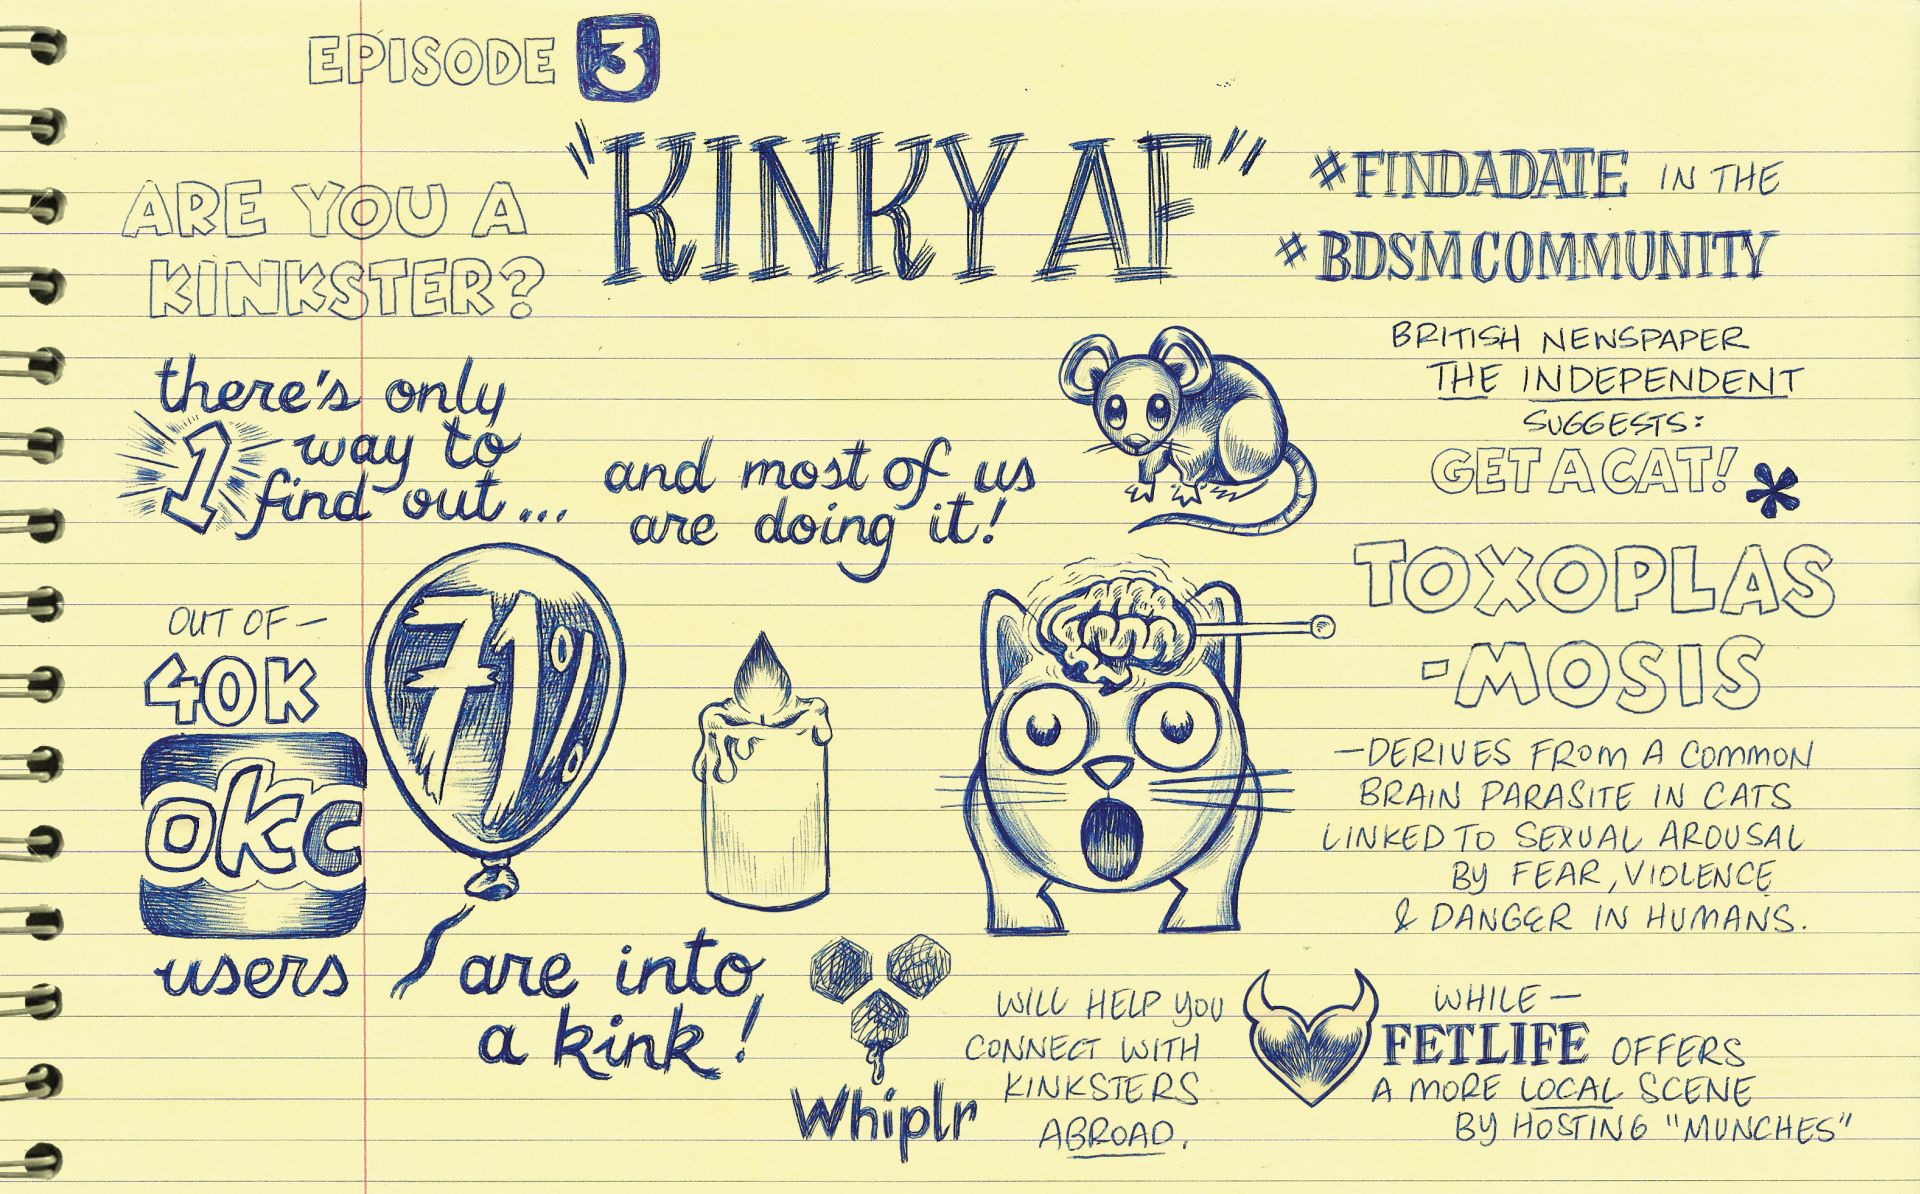 EPISODE 3
"KINKY AF"
ARE YOU A
KINKSTER?
there's only
1 way to
find out...
and most of us
are doing it!
OUT OF —
40K
okc
users
71%
are into
a kink!
Whiplr
WILL HELP YOU
CONNECT WITH
KINKSTERS
ABROAD.
#FINDADATE IN THE
#BDSMCOMMUNITY
BRITISH NEWSPAPER
THE INDEPENDENT
SUGGESTS:
GET A CAT! *
TOXOPLAS
-MOSIS
—DERIVES FROM A COMMON
BRAIN PARASITE IN CATS
LINKED TO SEXUAL AROUSAL
BY FEAR, VIOLENCE
& DANGER IN HUMANS.
WHILE —
FETLIFE OFFERS
A MORE LOCAL SCENE
BY HOSTING "MUNCHES"